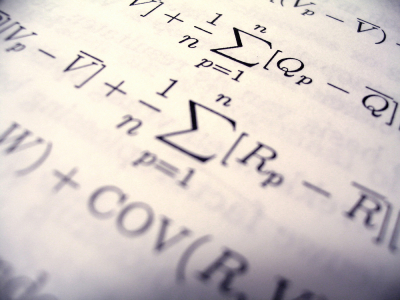 (V_p − V̅) ·
V] + \frac{1}{n} \sum_{p=1}^{n} [Q_p − Q̅]
[V_p − V̅] + \frac{1}{n} \sum_{p=1}^{n} [R_p − R̅][
W) + COV(R, W